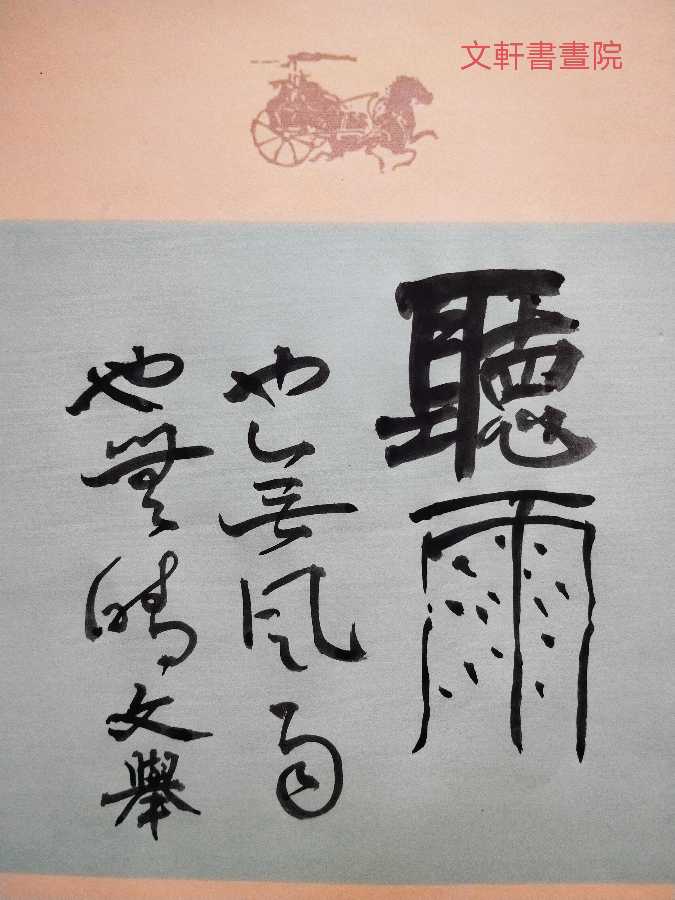 文軒書畫院
聽雨
也無風雨
也無晴文舉